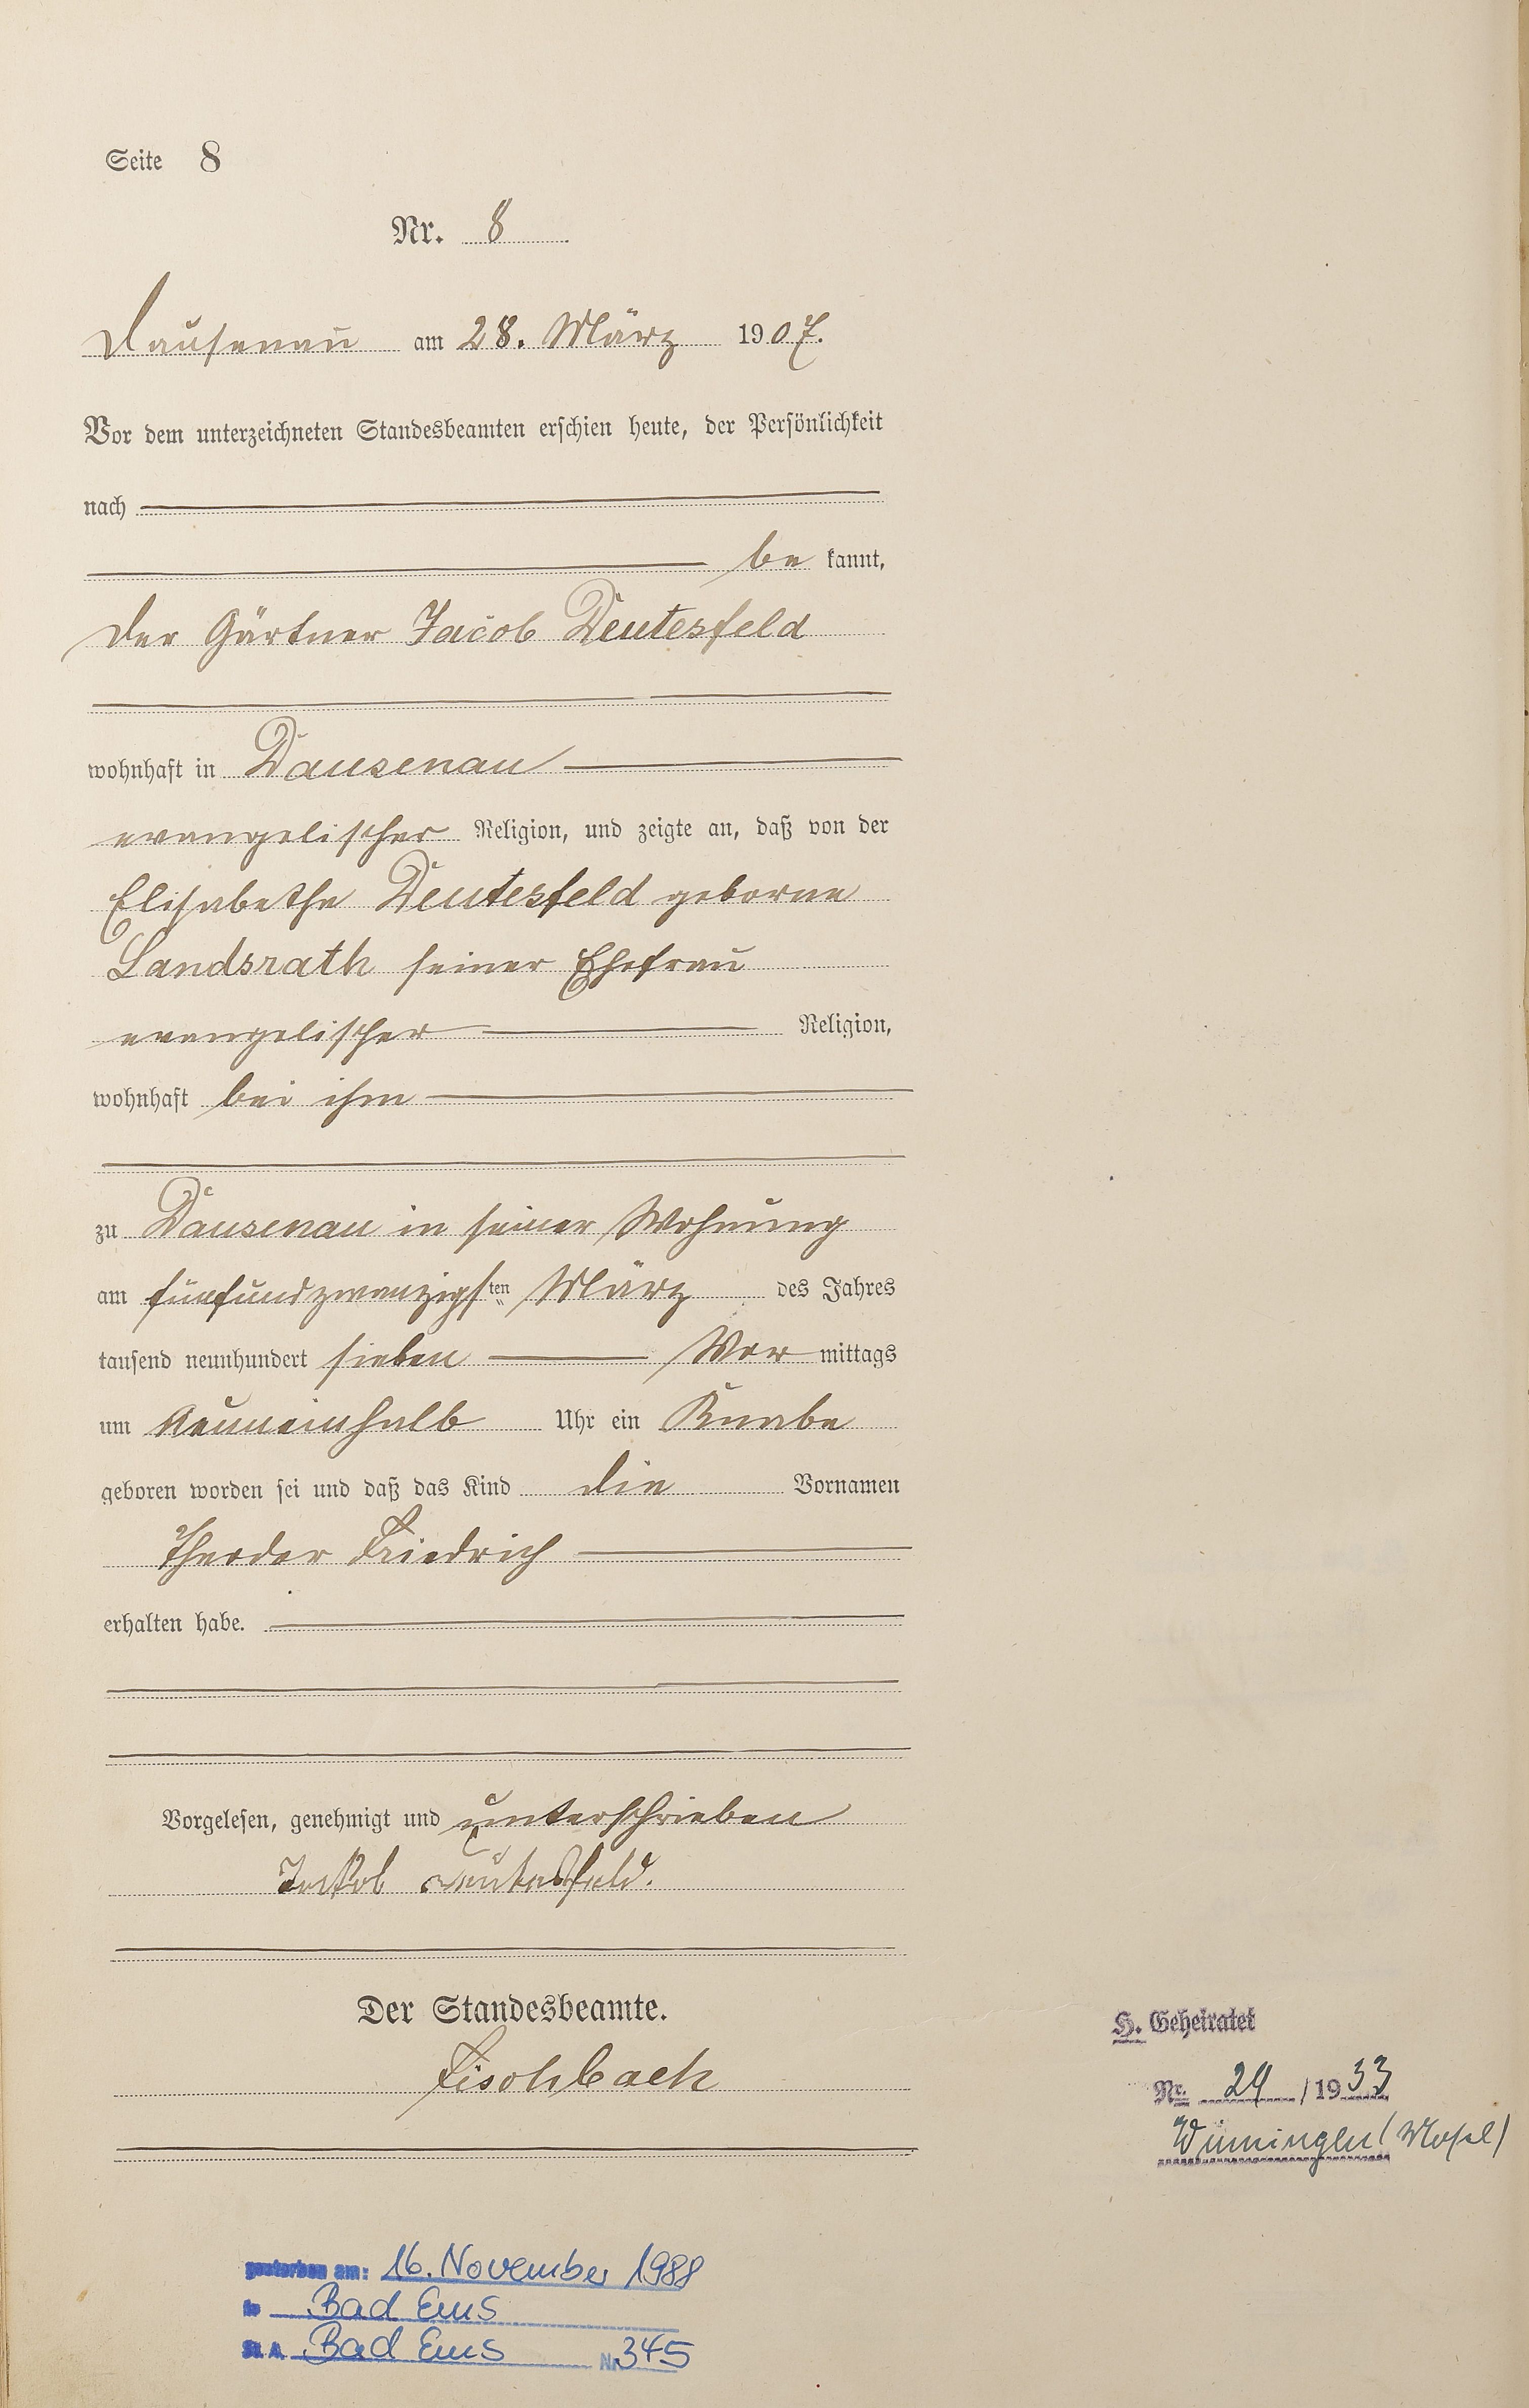 Seite 8
Nr. 8
Dausenau am 28. März 1907.
Vor dem unterzeichneten Standesbeamten erschien heute, der Persönlichkeit
nach
be kannt,
der Gärtner Jacob Deutesfeld
wohnhaft in Dausenau
evangelischer Religion, und zeigte an, daß von der
Elisabethe Deutesfeld geborne
Landsrath seiner Ehefrau
evangelischer Religion,
wohnhaft bei ihm
zu Dausenau in seiner Wohnung
am fünfundzwanzigsten März des Jahres
tausend neunhundert sieben Vor mittags
um neuneinhalb Uhr ein Knabe
geboren worden sei und daß das Kind die Vornamen
Theodor Friedrich
erhalten habe.
Vorgelesen, genehmigt und unterschrieben
Jakob Deutesfeld.
Der Standesbeamte.
Fischbach
H. Geheiratet
Nr. 24 / 1933
Winningen (Mosel)
gestorben am: 16. November 1988
in Bad Ems
St. A. Bad Ems Nr. 345